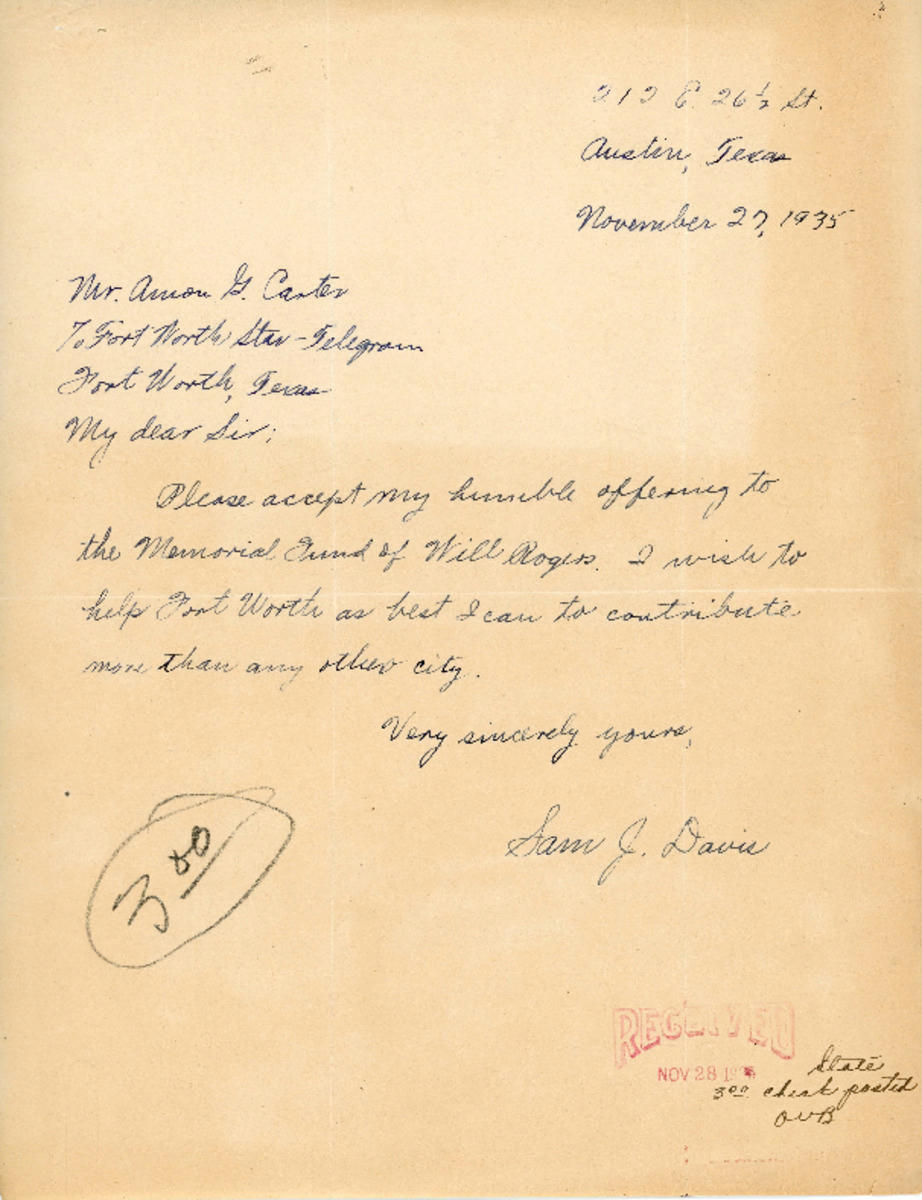 212 E. 26 1/2 St.
Austin, Texas
November 27, 1935
Mr. Amon G. Carter
% Fort Worth Star-Telegram
Fort Worth, Texas
My dear Sir:
Please accept my humble offering to
the Memorial Fund of Will Rogers. I wish to
help Fort Worth as best I can to contribute
more than any other city.
Very sincerely yours,
Sam J. Davis
3 00
RECEIVED
NOV 28 1935
State
3 00 check posted
OVB